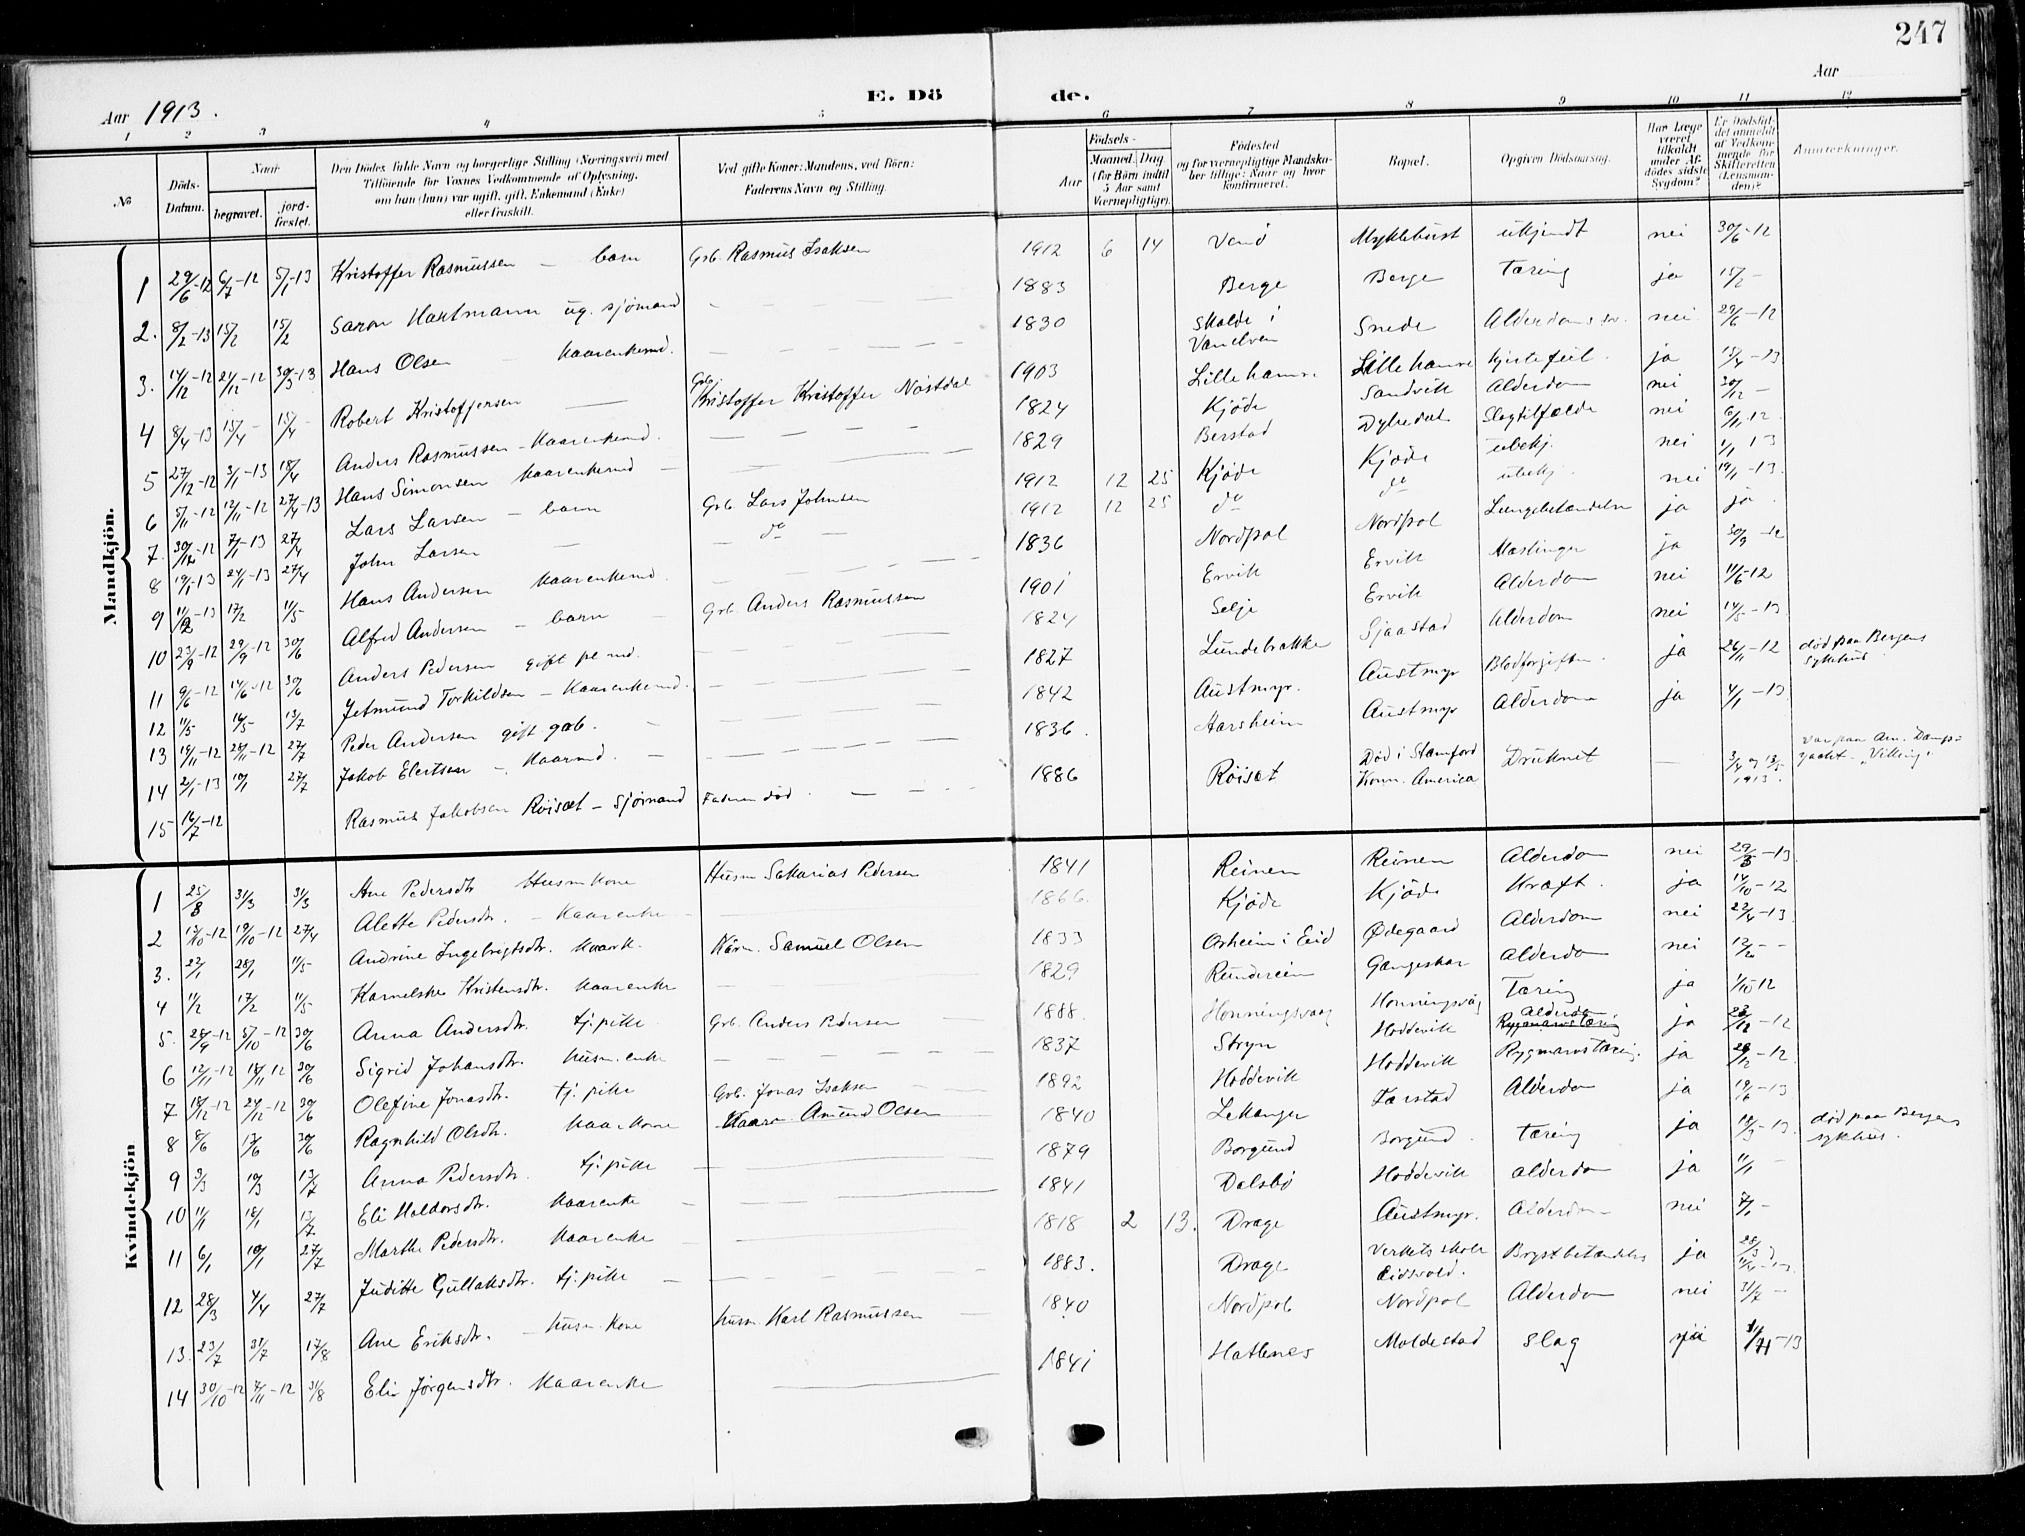 247
Aar 1913.
E. Dö de.
Aar
1 2 3 4 5 6 7 8 9 10 11 12
No
Döds-Datum.
Naar
begravet.
jord-fæstet.
Den Dödes fulde Navn og borgerlige Stilling (Næringsvei) med Tilföiende for Voxnes Vedkommende af Oplysning, om han (hun) var ugift, gift, Enkemand (Enke) eller fraskilt.
Ved gifte Koner: Mandens, ved Börn: Faderens Navn og Stilling.
Födsels-
Aar
Maaned. Dag. (for Börn indtil 5 Aar samt Værnepligtige).
Födested og for værnepligtige Mandskaber tillige: Naar og hvor konfirmeret.
Bopæl.
Opgiven Dödsaarsag.
Har Læge været tilkaldt under Afdödes sidste Sygdom?
Er Dödsfaldet anmeldt af Vedkommende for Skifteretten (Lensmanden)?
Anmærkninger.
Mandkjön.
1 29/6-12 6/7-12 5/1-13 Kristoffer Rasmussen – barn Grb. Rasmus Isaksen 1912 6 14 Myklebust ukjendt nei 30/6-12
2. 8/2-13 15/2 15/2 Saron Hartmann ug. sjömand 1883 Berge Berge Tæring ja 15/2-
3. 14/12-12 21/12-12 30/3-13 Hans Olsen Kaarenkemd. 1830 Skolde i Vanelven Snede nei 29/6-12
4 8/4-13 15/4- 15/4- Robert Kristoffersen Grb. Kristoffer Kristoffer Nöstdal 1903 Lillehamre Lillehamre Hjertefeil. ja 15/4-13
5 27/12-12 3/1-13 18/4 Anders Rasmussen – Kaarenkemd. 1824 Kjöde Sandvik Alderdom nei 30/12-
6 5/11-12 12/11-12 27/4-13 Hans Simonsen Kaarenkemd 1829 Berstad Slagtilfælde nei 6/11-12
7. 30/12-12 7/1-13 27/4 Lars Larsen – barn Grb. Lars Johnsen 1912 12 25 Kjöde Kjöde ubekj. nei 1/1-13
8 19/1-13 24/1-13 27/4 John Larsen – do – 1912 12 25 do do ubekj. nei 19/1-13.
9 11/2-13 17/2 11/5 Hans Andersen Kaarenkemd. 1836 Nordpol Nordpol Lungebetændelse ja ja
10 23/9-12 29/9-12 30/6 Alfred Andersen – barn Grb. Anders Rasmussen 1901 Ervik Ervik Mæslinger ja 30/9-12
11 9/6-12 14/6-12 30/6 Anders Pedersen gift 1824 Selje Ervik Alderdom nei 11/6-12
12 11/5 16/5 13/7 Jetmund Torkildsen – Kaarenkemd. 1827 Lundebrekke Sjaastad Alderdom nei 14/5-13
13 19/11-12 28/11-12 27/7 Peder Andersen gift gab. 1842 Austmyr. Austmyr Blodforgiftn. ja 26/11-12 död paa Bergens sykehus.
14 2/1-13 10/1 27/7 Jakob Elertsen – Kaarmd. 1836. Aarsheim Austmyr Alderdom ja 4/1-13
15 16/7-12 Rasmus Jakobsen Röisæt – Sjömand Faderen död. 1886 Röisæt Död i Stamford Konn. America Druknet – 3/4 og 13/5 1913. var paa Am. Damp-yacht "Viking"
Kvindekjön
1 25/3 31/3 31/3 Ane Pedersdtr Husmkone Husm Sakarias Pedersen 1841 Reinen Reinen Alderdom nei 29/3-13.
2 13/10-12 19/10-12 27/4 Alette Pedersdtr. – Kaarenke – 1866. Kjöde Kjöde Kræft. ja 14/10-12
3. 22/1 28/1 11/5 Andrine Ingebrigtsdtr. Kaark. Kårm. Samuel Olsen 1833 Osheim i Eid Ödegaard Alderdom nei 22/4-13.
4 11/2 17/2 11/5 Karnelske Kristensdtr. Kaarenke 1829 Rundereim Gangeskar Alderdom nei 12/2 - -
5. 28/9-12 5/10-12 30/6 Anna Andersdtr. tj. pike Grb. Anders Pedersen 1888. Honningsvaag Honningsvåg Tæring ja 1/10-12
6 12/11-12 18/11-12 30/6 Sigrid Johansdtr. husm. enke 1837 Stryn Hoddevik Alderdom ja 23/12-12
7 18/12-12 24/12-12 30/6 Olefine Jonasdtr. tj. pike Grb. Jonas Isaksen 1892 Hoddevik Hoddevik Rygmarvstæring. ja 28/12-12.
8 8/6 17/6 30/6 Ragnhild Olsdtr. Kaarkone Kaarm Amund Olsen 1840 Lekanger Tarstad Alderdom ja 19/6-13
9 3/3 10/3 13/7 Anna Pedersdtr. tj. pike 1879 Borgund Borgund. Tæring ja 18/3-13. död paa Bergens sykhus.
10 11/1 18/1 13/7 Eli Haldorsdtr. Kaarenke 1841 Dalsbö Hoddevik Alderdom ja 11/1-
11 6/1 10/1 27/7 Marthe Pedersdtr. Kaarenke 1818 2 13. Drage Austmyr. Alderdom nei 7/1-
12 28/3 4/4 27/7 Juditte Gullaksdtr. tj. pike 1883. Drage Verkets skole Eidsvold. Brystbetændelse ja 28/3
13. 23/7 31/7 17/8 Ane Eriksdtr. – husm. kone husm. Karl Rasmussen 1840 Nordpol Nordpol Alderdom nei 31/7-
14 30/10-12 7/11-12 31/8 Elie Jörgensdtr. Kaarenke 1841 Hatlenes Moldestad Slag